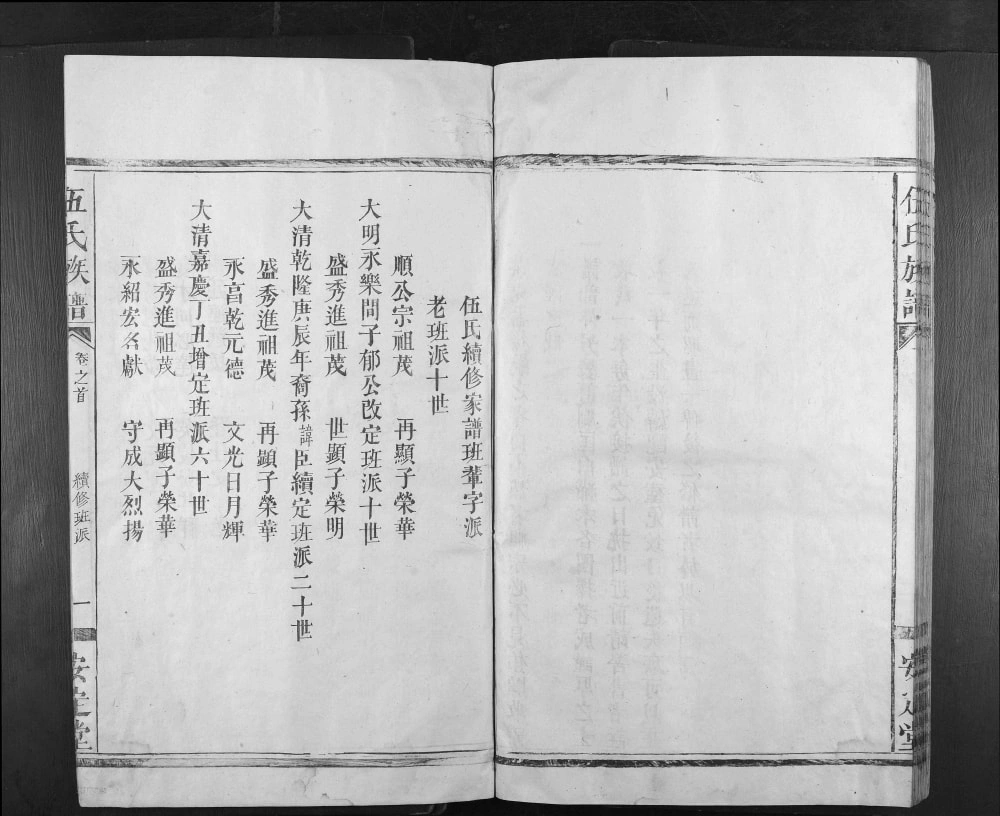 伍氏族譜
安定堂
伍氏續修家譜班輩字派
老班派十世
順公宗祖茂　再顯子榮華
大明永樂間子郁公改定班派十世
盛秀進祖茂　世顯子榮明
大清乾隆庚辰年裔孫諱臣續定班派二十世
盛秀進祖茂　再顯子榮華
永言乾元德　文光日月輝
大清嘉慶丁丑增定班派六十世
盛秀進祖茂　再顯子榮華
永紹宏名獻　守成大烈揚
伍氏族譜
卷之首
續修班派
一
安定堂